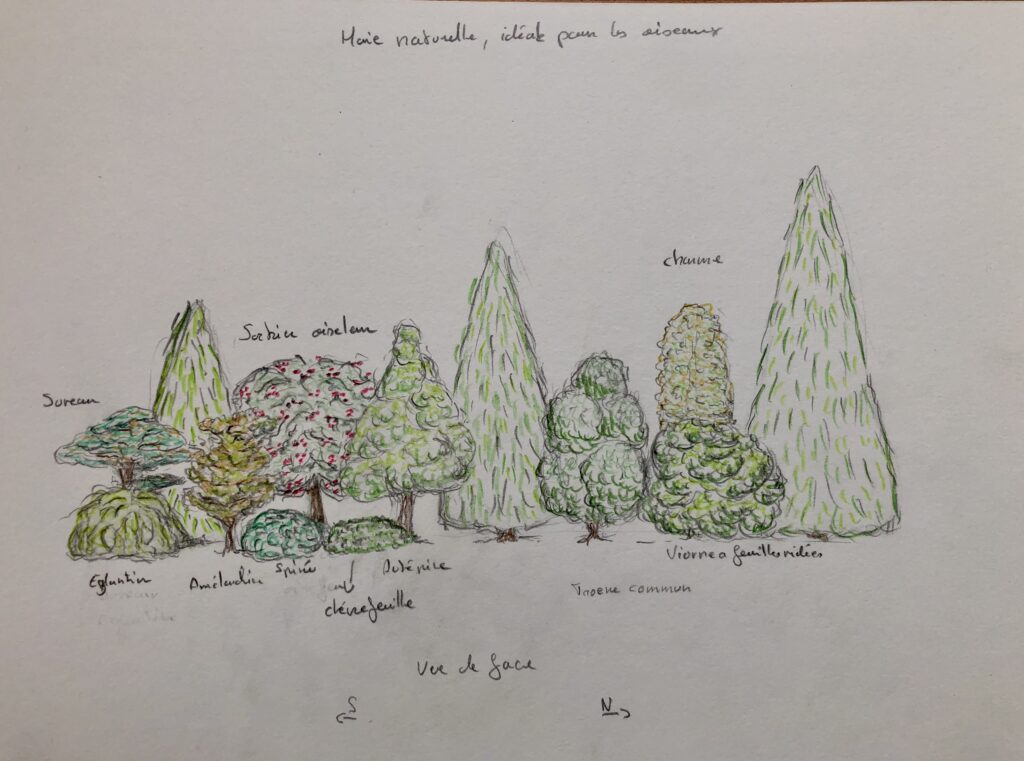 Haie naturelle, idéale pour les oiseaux
charme
Sorbier oiseleur
Sureau
Viorne a feuilles ridées
Eglantier
Amélanchier
Spirée
Aubépine
Troene commun
chèvrefeuille
Vue de face
S
N